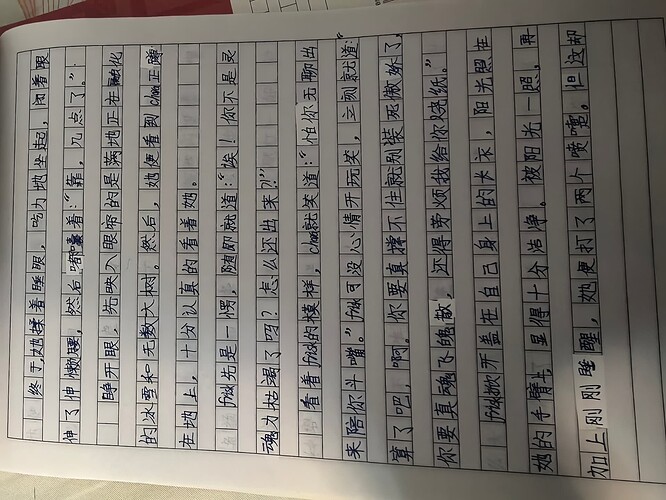 终于,她揉着睡眼,吃力地坐起,闭着眼
伸了伸懒腰,然后嘟囔着:“靠,几点了。”
睁开眼,先映入眼帘的是满地正在融化
的冰雪和无数大树。然后,她便看到chara正蹲
在地上,十分认真的看着她。
frisk先是一愣,随即就道:“埃!你不是灵
魂力枯竭了吗?怎么还出来?!”
看着frisk的模样,chara就笑道:“怕你无聊出
来陪你斗嘴。”frisk可没心情开玩笑,立刻就道:“
算了吧,啊。你要真撑不住就别装死傲娇了,
你要真魂飞魄散,还得劳烦我给你烧纸。”
frisk掀开盖在自己身上的长衣,阳光照在
她的手臂上,显得十分洁净。被阳光一照,再
加上刚刚睡醒,她便打了两个喷嚏。但这却